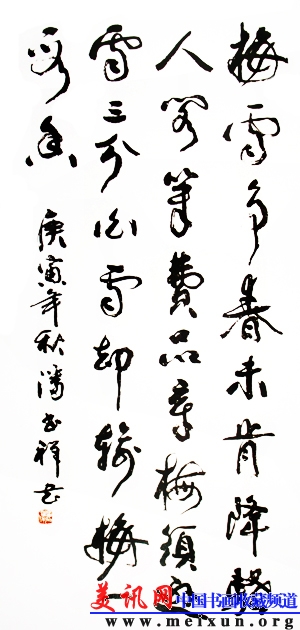 梅雪争春未肯降騷
人阁筆費品章梅須遜
雪三分白雪却輸梅一
段香
庚寅年秋潘祥书
美讯网 中国书画收藏频道
www.meixun.org